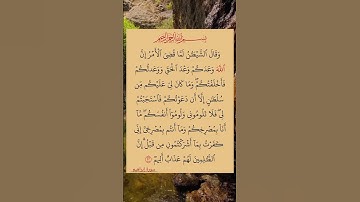 بسم الله الرحمن الرحيم
وَقَالَ ٱلشَّيْطَٰنُ لَمَّا قُضِىَ ٱلْأَمْرُ إِنَّ
ٱللَّهَ وَعَدَكُمْ وَعْدَ ٱلْحَقِّ وَوَعَدتُّكُمْ
فَأَخْلَفْتُكُمْ وَمَا كَانَ لِىَ عَلَيْكُم مِّن
سُلْطَٰنٍ إِلَّآ أَن دَعَوْتُكُمْ فَٱسْتَجَبْتُمْ
لِى فَلَا تَلُومُونِى وَلُومُوٓا۟ أَنفُسَكُم مَّآ
أَنَا۠ بِمُصْرِخِكُمْ وَمَآ أَنتُم بِمُصْرِخِىَّ إِنِّى
كَفَرْتُ بِمَآ أَشْرَكْتُمُونِ مِن قَبْلُ إِنَّ
ٱلظَّٰلِمِينَ لَهُمْ عَذَابٌ أَلِيمٌ